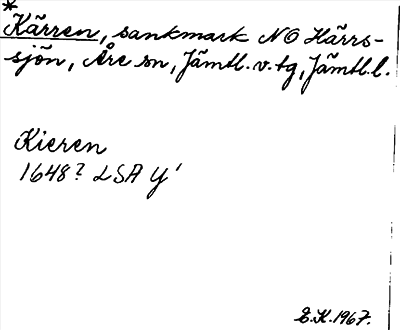 *
Kärren, sankmark NO Härrs-
sjön, Åre sn, Jämtl. v. tg, Jämtl. l.
Kieren
1648? LSA Y'
E.K. 1967.